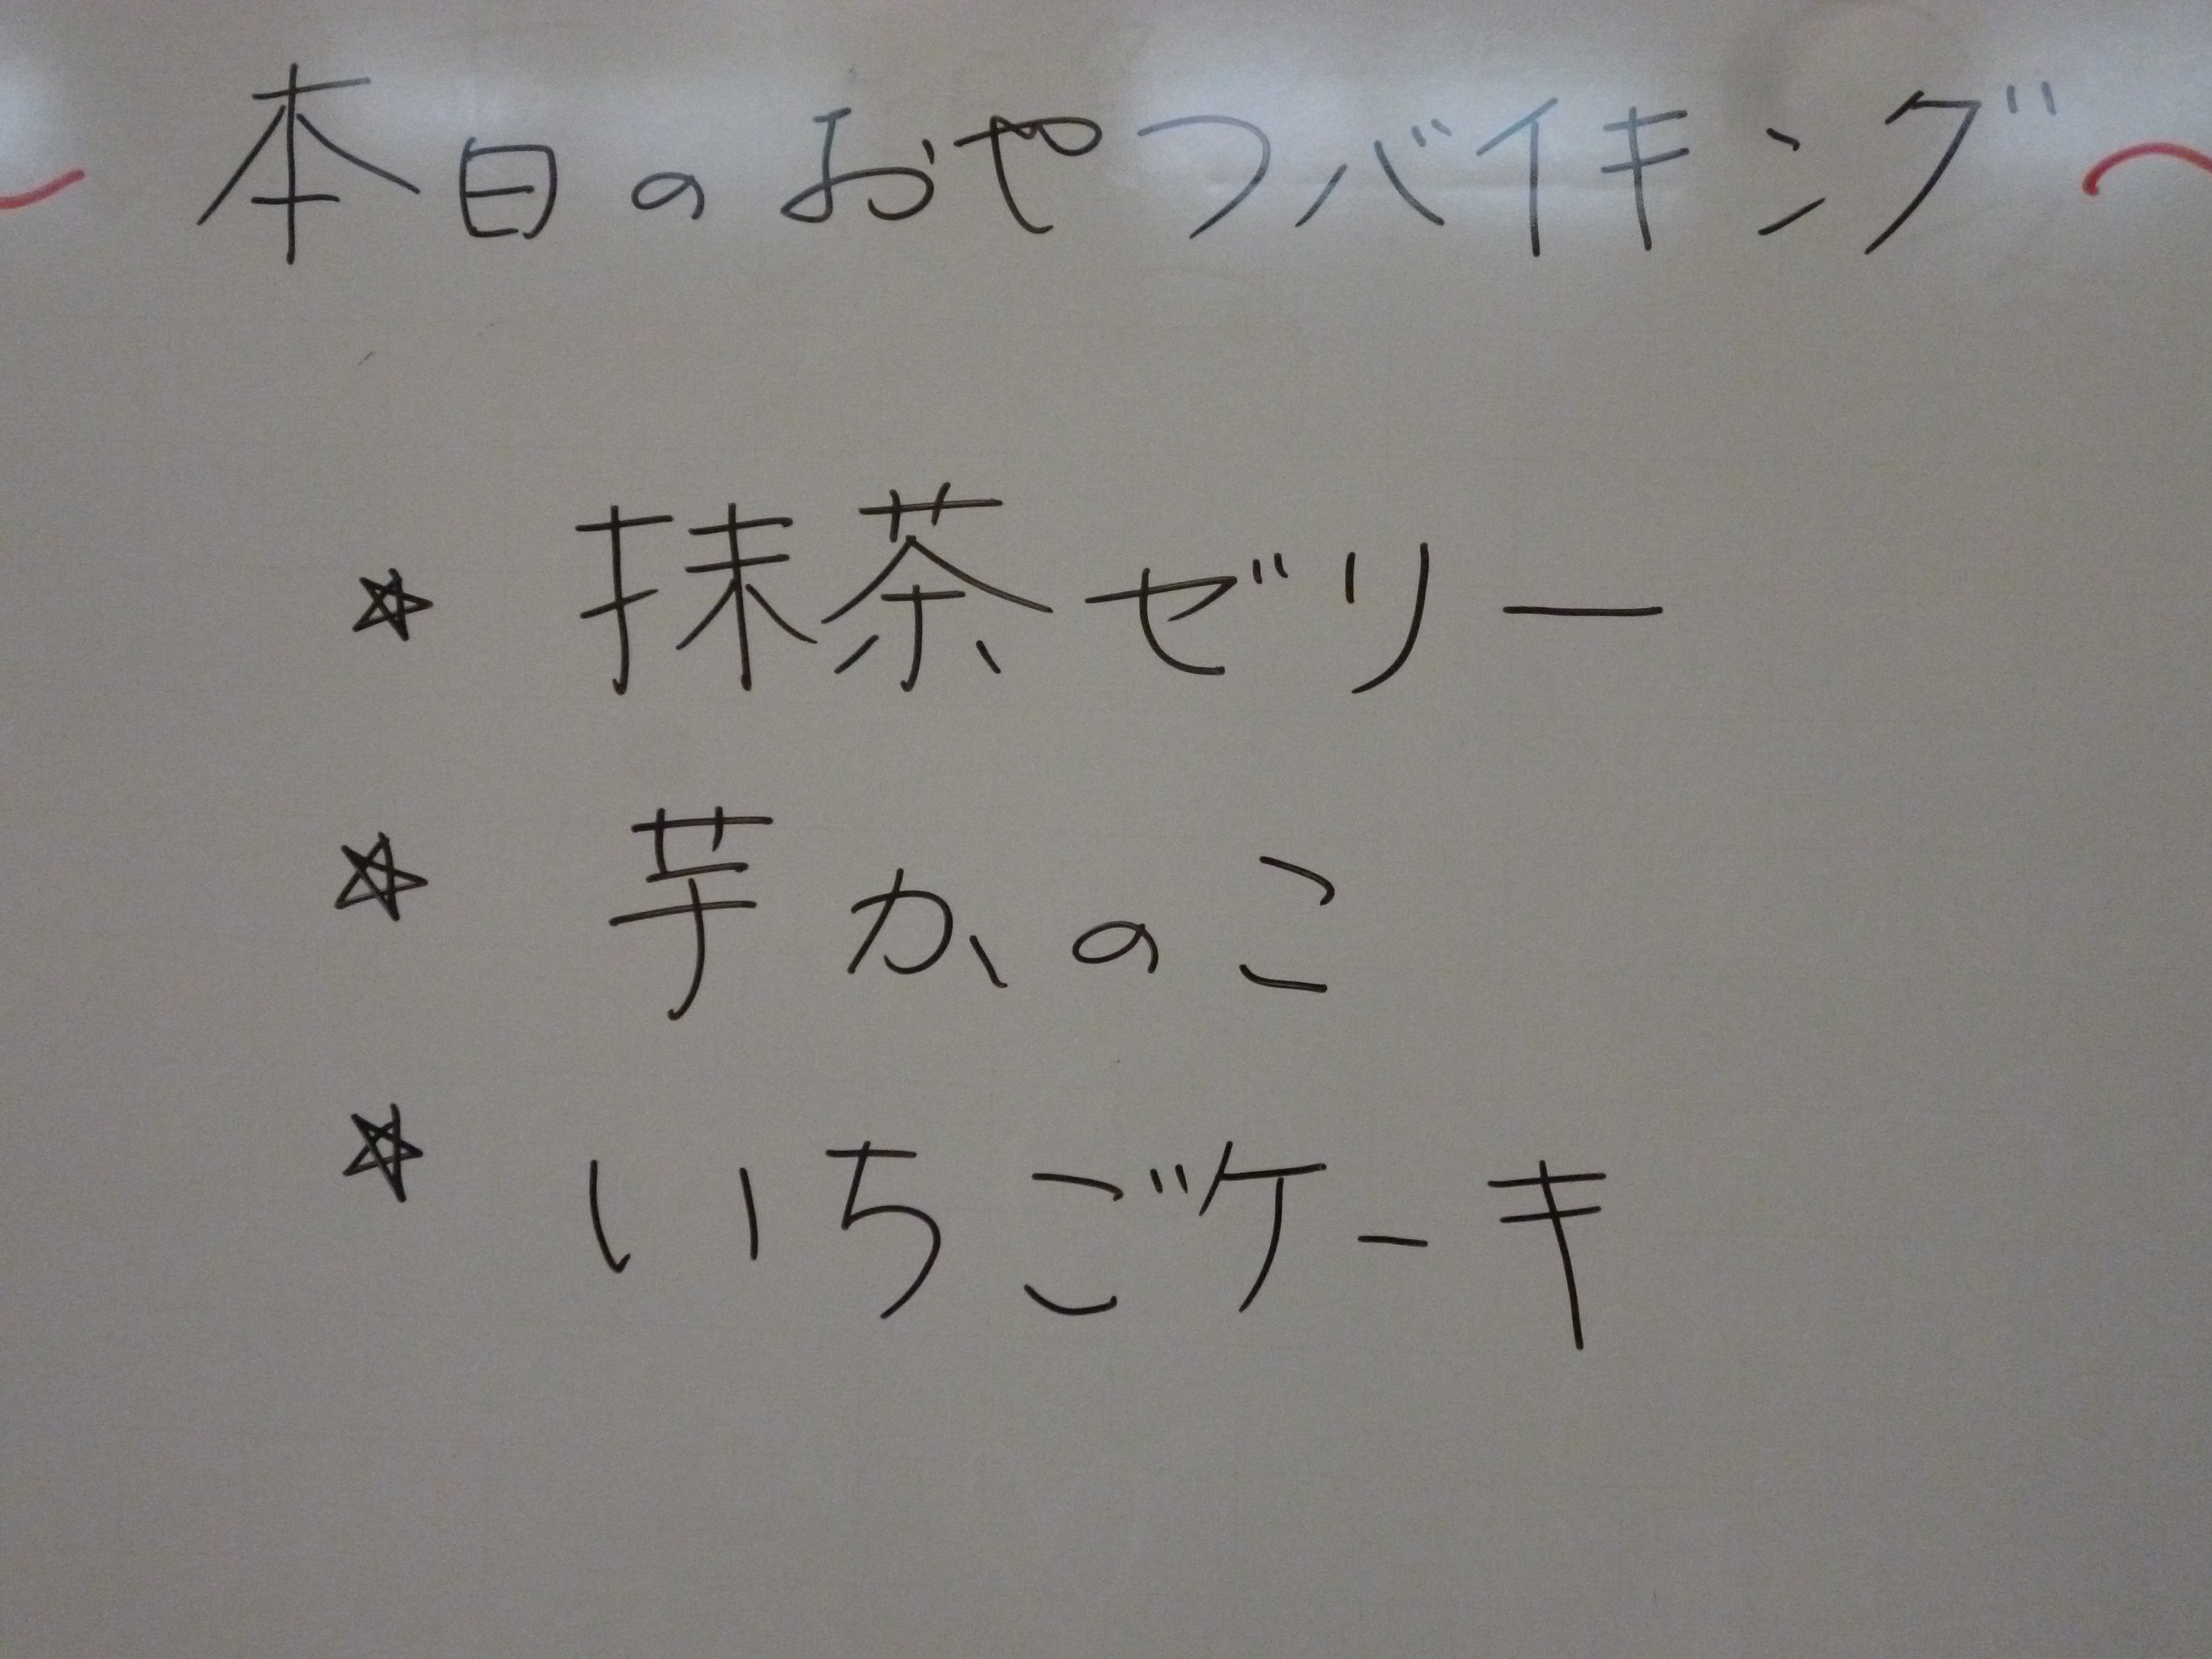 ～本日のおやつバイキング～
☆ 抹茶ゼリー
☆ 芋かのこ
☆ いちごケーキ